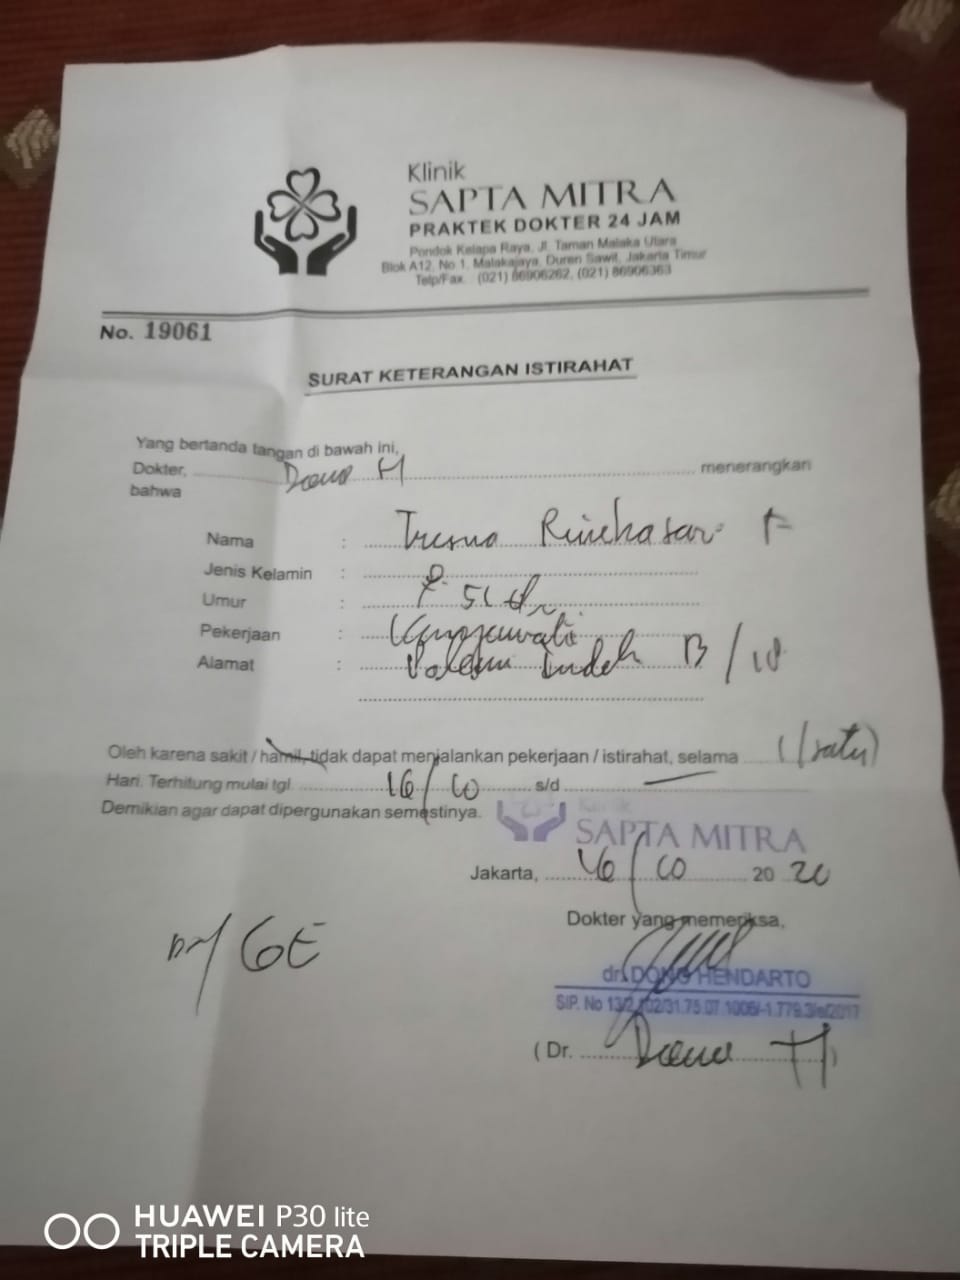 Klinik
SAPTA MITRA
PRAKTEK DOKTER 24 JAM
Pondok Kelapa Raya, Jl. Taman Malaka Utara
Blok A12, No.1, Malakajaya, Duren Sawit, Jakarta Timur
Telp/Fax. : (021) 86906262, (021) 86906363
No. 19061
SURAT KETERANGAN ISTIRAHAT
Yang bertanda tangan di bawah ini,
Dokter, H menerangkan
bahwa
Nama : Tresna F
Jenis Kelamin :
Umur : 51
Pekerjaan :
Alamat : Indah B/18
Oleh karena sakit / hamil, tidak dapat menjalankan pekerjaan / istirahat, selama 1 (satu)
Hari. Terhitung mulai tgl. 16/10 s/d —
Demikian agar dapat dipergunakan semestinya.
Klinik
SAPTA MITRA
Jakarta, 16/10 20 20
Dokter yang memeriksa,
GE
dr. DONG HENDARTO
SIP. No
(Dr. H)
HUAWEI P30 lite
TRIPLE CAMERA